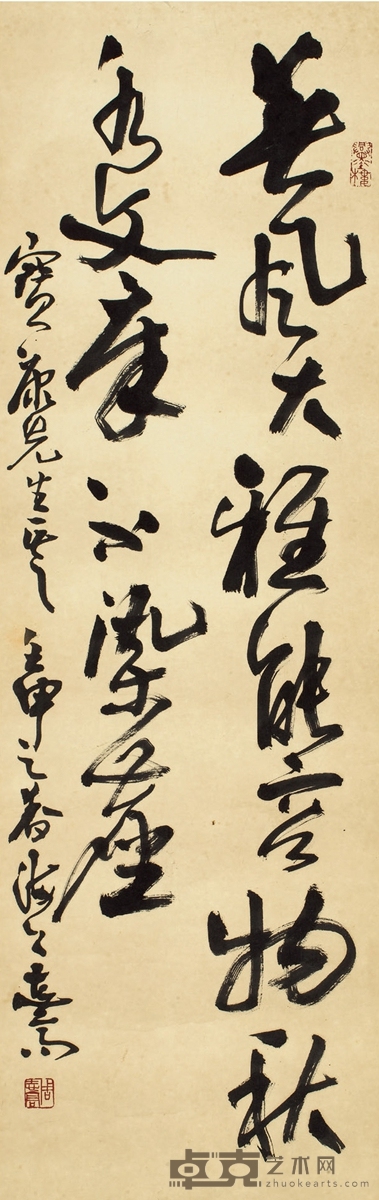 春风大雅能容物秋
水文章不染尘
寶康先生正之 壬申之春海上慧
卓克艺术网
zhuokearts.com